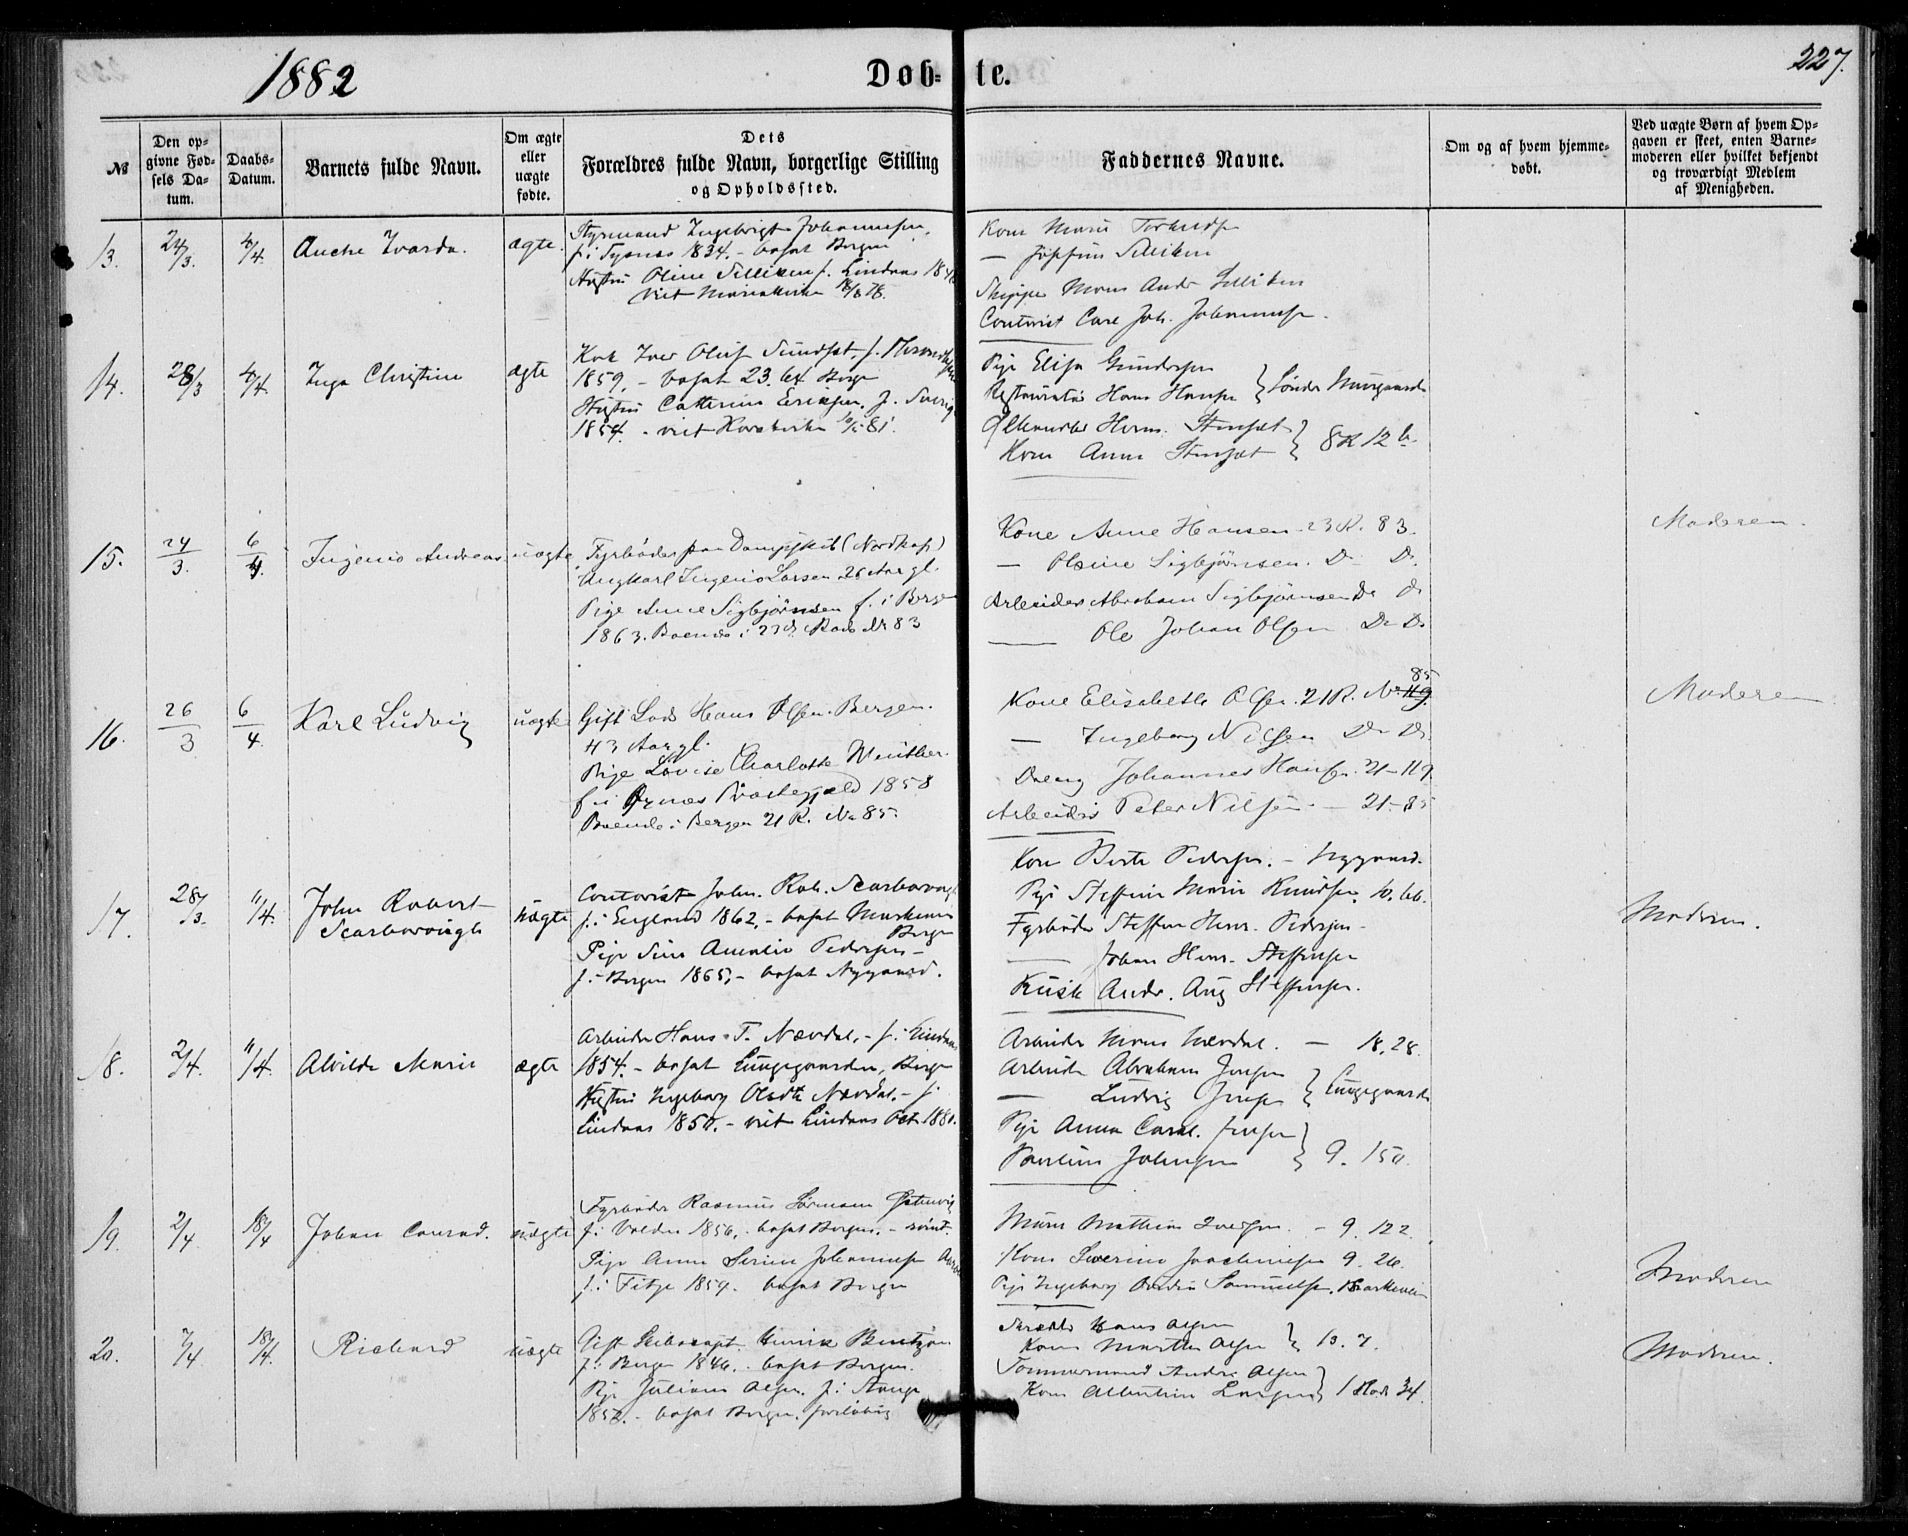 1882
Døb-
te.
227.
№
Den op-
givne Fød-
sels Da-
tum.
Daabs-
Datum.
Barnets fulde Navn.
Om ægte
eller
uægte
fødte.
Dets
Forældres fulde Navn, borgerlige Stilling
og Opholdssted.
Faddernes Navne.
Om og af hvem hjemme-
døbt.
Ved uægte Børn af hvem Op-
gaven er skeet, enten Barne-
moderen eller hvilket bekjendt
og troværdigt Medlem
af Menigheden.
13.
24/3.
4/4.
ægte.
Styrmand Ingebrigt Johannesen,
f. i Tysnæs 1834. - bosat Bergen
Hustru Oline Sellikem f. Lindaas
viet Mariakirke
Kone Marie
Contorist Carl Joh. Johannesen.
14.
28/3
4/4.
Inga Christine
ægte
Kok Iver Oluf Sundsæt, f.
1859. - bosat 23. 64 Bergen
Hustru Cathrine Eriksen. f. Sverige
1854. - viet Korskirken 81.
Pige Elisa Gundersen
Restauratør Hans Hansen
Herm.
Kone Anna
8R 12 b.
15.
24/3.
6/4.
Ingenio Andreas
uægte
Fyrbøder paa Dampskib (Nordkap)
Ungkarl Ingenio Larsen 26 Aar gl.
Pige Anne Sigbjørnsen f. i Bergen
1863. Boende i 23de Rode Nr 83
Kone Anne Hansen 23 R. 83.
— Olsine Sigbjørnsen. Do Do.
Arbeider Abraham Sigbjørnsen Do do
— Ole Johan Olsen Do Do.
Moderen.
16.
26/3
6/4.
Karl Ludvig
uægte
Gift Lods Hans Olsen. Bergen.
43 Aar gl.
Pige Lovise Charlotte Winther.
f. i Præstegjæld 1858
Boende i Bergen 21 R. No 85.
Kone Elisabeth Olsen. 21 R. No 119. 85
— Ingeborg Nilsen Do Do.
Dreng Johannes Hansen. 21 - 119.
Arbeider Peter Nilsen - 21 - 85
Moderen
17.
28/3.
11/4.
John Robert
Scarborough
uægte
Contorist John. Rob. Scarborough
f. i England 1862, - bosat Marken
Bergen
Pige Sina Amalia Pedersen -
f. i Bergen 1865, - bosat Nygaard.
Kone Berte Pedersen. - Nygaard.
Pige Steffine Marie Knudsen. 10. 66.
Fyrbøder Steffen Henr. Pedersen -
— Johan Henr. Steffensen
Kusk Andr. Aug Steffensen.
Moderen.
18.
2/4.
11/4.
Alvilde Marie
ægte
Arbeider Hans T. Nævdal, - f. i Lindaas
1854. - bosat Lungegaarden, Bergen
Hustru Ingeborg Nævdal, - f.
Lindaas 1850. - viet Lindaas Oct. 1880.
Arbeider Mons Nævdal. - 18. 28.
Arbeider Abraham Jensen
— Ludvig Jensen
Lungegaarden
Pige Anna Carol. Jensen
Pauline Johnsen
9. 150.
19.
2/4.
18/4
Johan Conrad.
uægte
Fyrbøder Rasmus
f. i Volden 1856, - bosat Bergen, -
Pige Anna Serine Johannesen
f. i Fitje 1859. bosat Bergen
Murer Mathias Iversen. - 9. 122.
Kone Severine Joachimsen 9. 26.
Pige Ingeborg Samuelsen.
Moderen
20.
7/4
18/4.
Richard
uægte
Gift Skibscapt. Henrik Bentzen
f. i Bergen 1846, - bosat Bergen.
Pige Juliane Olsen. f. i
1852. - bosat Bergen. foreløbig
Hans Olsen
Kone Marthe Olsen
13. 7.
Tømmermand Andr. Olsen
Kone Albertine Larsen
1 Rode 34.
Moderen.